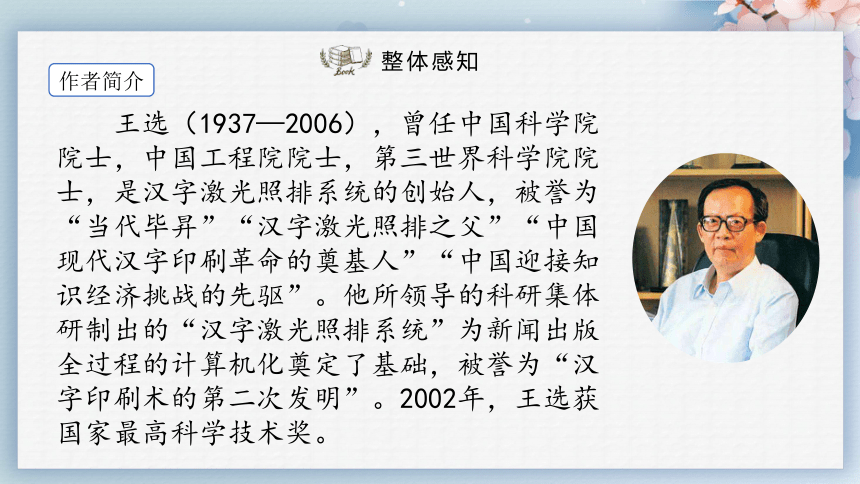 Book
整体感知
作者简介
王选（1937—2006），曾任中国科学院
院士，中国工程院院士，第三世界科学院院
士，是汉字激光照排系统的创始人，被誉为
“当代毕昇”“汉字激光照排之父”“中国
现代汉字印刷革命的奠基人”“中国迎接知
识经济挑战的先驱”。他所领导的科研集体
研制出的“汉字激光照排系统”为新闻出版
全过程的计算机化奠定了基础，被誉为“汉
字印刷术的第二次发明”。2002年，王选获
国家最高科学技术奖。